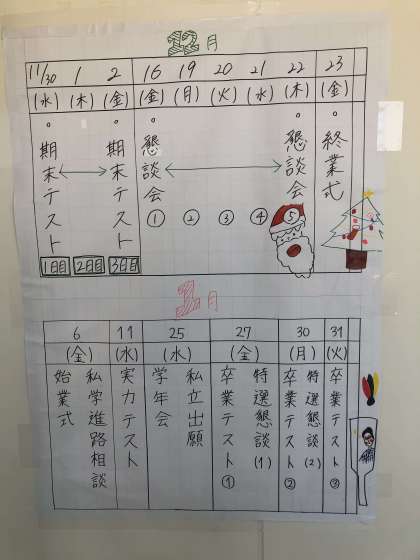 12月
11/30 1 2 16 19 20 21 22 23
(水) (木) (金) (金) (月) (火) (水) (木) (金)
・期末テスト
・期末テスト
・懇談会
・懇談会
・終業式
① ② ③ ④ ⑤
1日目 2日目 3日目
1月
6 11 25 27 30 31
(金) (水) (水) (金) (月) (火)
私学進路相談
始業式
実力テスト
私立出願
学年会
特選懇談(1)
卒業テスト①
特選懇談(2)
卒業テスト②
卒業テスト③